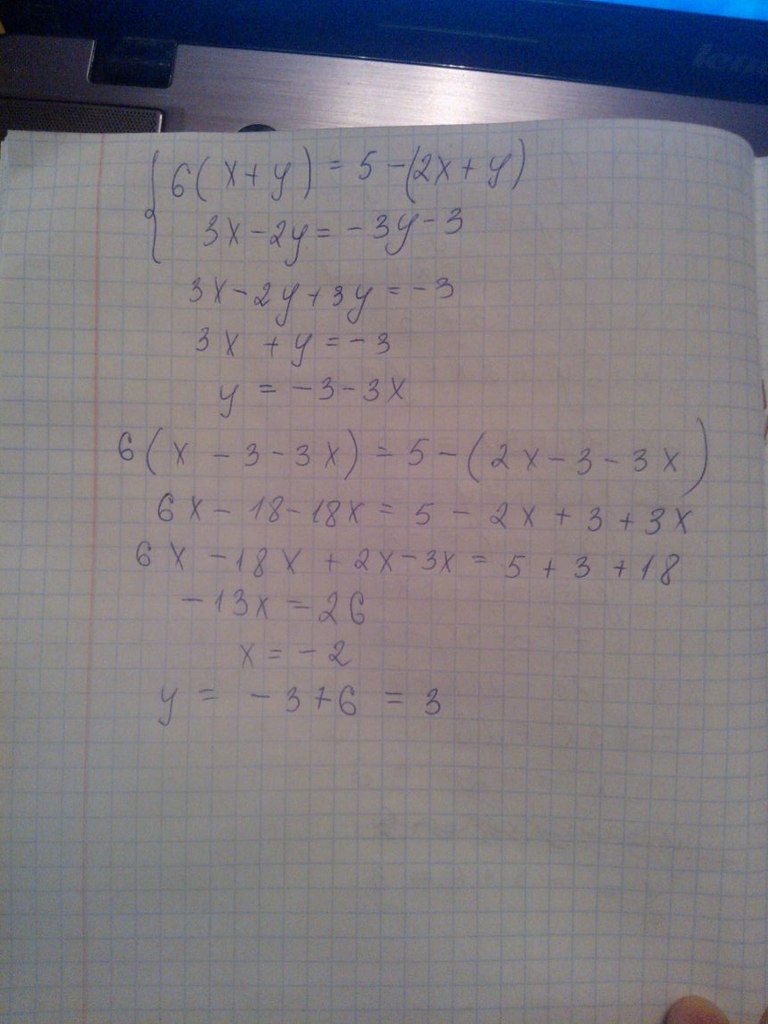 { 6(x+y) = 5-(2x+y)
3x-2y = -3y-3
3x-2y+3y = -3
3x + y = -3
y = -3-3x
6(x - 3 - 3x) = 5-(2x-3-3x)
6x-18-18x = 5 - 2x + 3 + 3x
6x - 18x + 2x - 3x = 5 + 3 + 18
-13x = 26
x = -2
y = -3+6 = 3